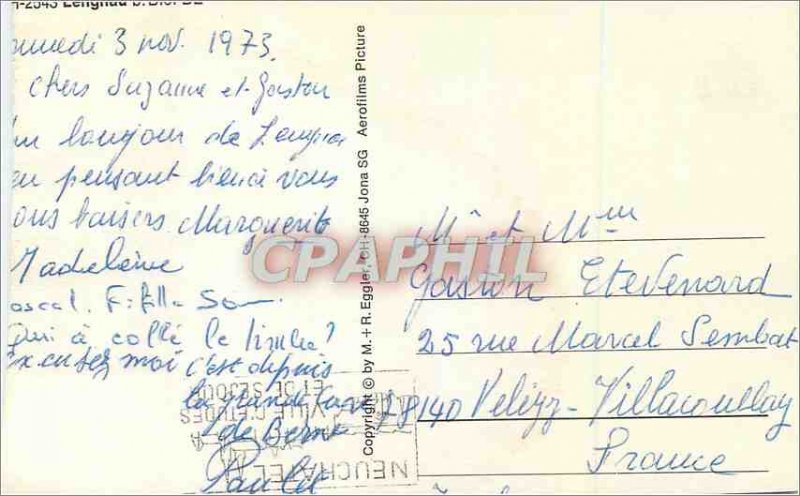 H-2543 Lengnau b. Biel BE
medi 3 nov. 1973.
chers Suzanne et Gaston
un bonjour de Lengnau
en pensant bien à vous
bons baisers Marguerite
Madeleine
Pascal.
Qui à collé le timbre?
Excusez moi c'est depuis
la grande
de Berne
Copyright © by M. + R. Eggler, CH-8645 Jona SG Aerofilms Picture
Mr et Mme
Gaston Etevenard
25 rue Marcel Sembat
78140 Velizy-Villacoublay
France
CPAPHIL
NEUCHATEL
VILLE D'ETUDES
ET DE SEJOUR